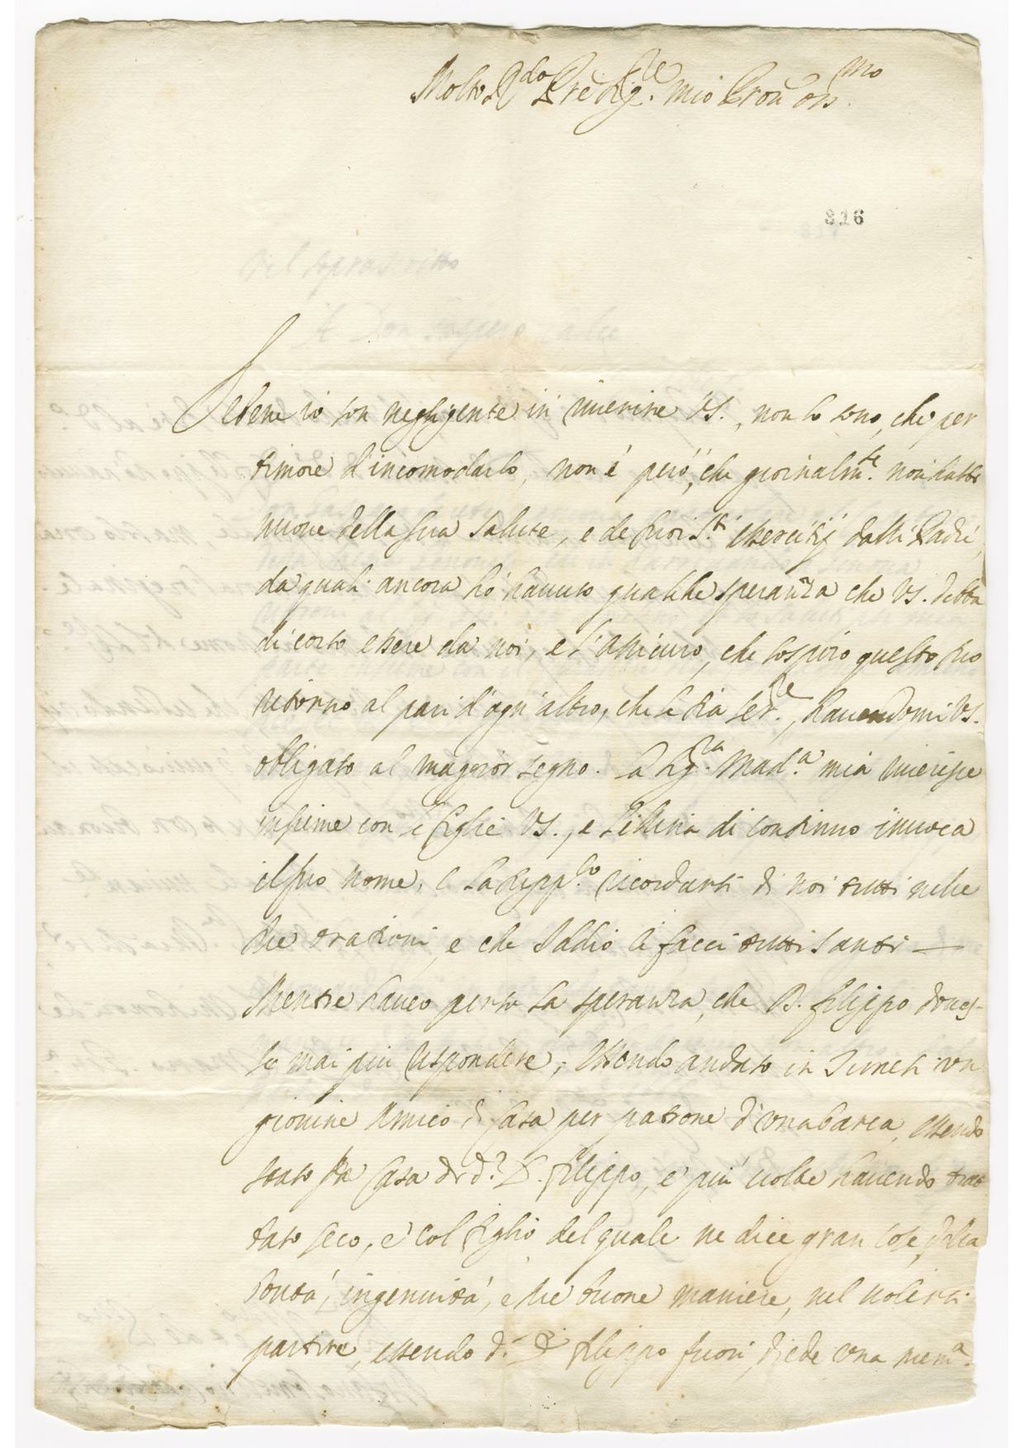 Molto R.do Pre Sig.re mio Pron oss.mo
316
Sebene io son negligente in riuerire VS., non lo sono, che per
timore d'incomodarlo, non è però, che giornalm.te non habbi
nuoue della sua salute, e de suoi S.ti essercitij dalli Padri,
da quali ancora hò hauuto qualche speranza che VS. debba
di corto essere da noi, e l'assicuro, che sospiro questo suo
ritorno al pari d'ogn'altro, che le sia ser.re, hauendomi VS.
obligato al maggior segno. La Sig.ra Mad.a mia riuerisce
insieme con le figlie VS., e di continuo inuoca
il suo nome, e la supp.co ricordarsi di noi tutti nelle
sue orationi, e che Iddio ci facci tutti santi —
Mentre haueo perso la speranza, che D. Filippo doues-
se mai più rispondere, essendo andato in Tunesi un
giouine Amico di Casa per patrone d'una barca, essendo
stato in Casa di d.o D. Filippo, e più uolte hauendo trat-
tato seco, e col figlio del quale ne dice gran cose, della
bontà, ingenuità, e sue buone maniere, nel uolersi
partire, essendo d.o D. Filippo fuori, diede una mem.a